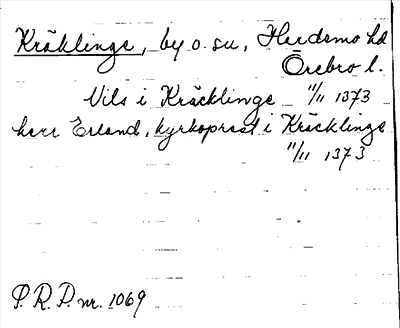 Kräklinge, by o. su, Hardemo hd
Örebro l.
Nils i Kräcklinge 11/11 1373
herr Erland, kyrkoprest i Kräcklinge
11/11 1373
P. R. P. nr. 1069